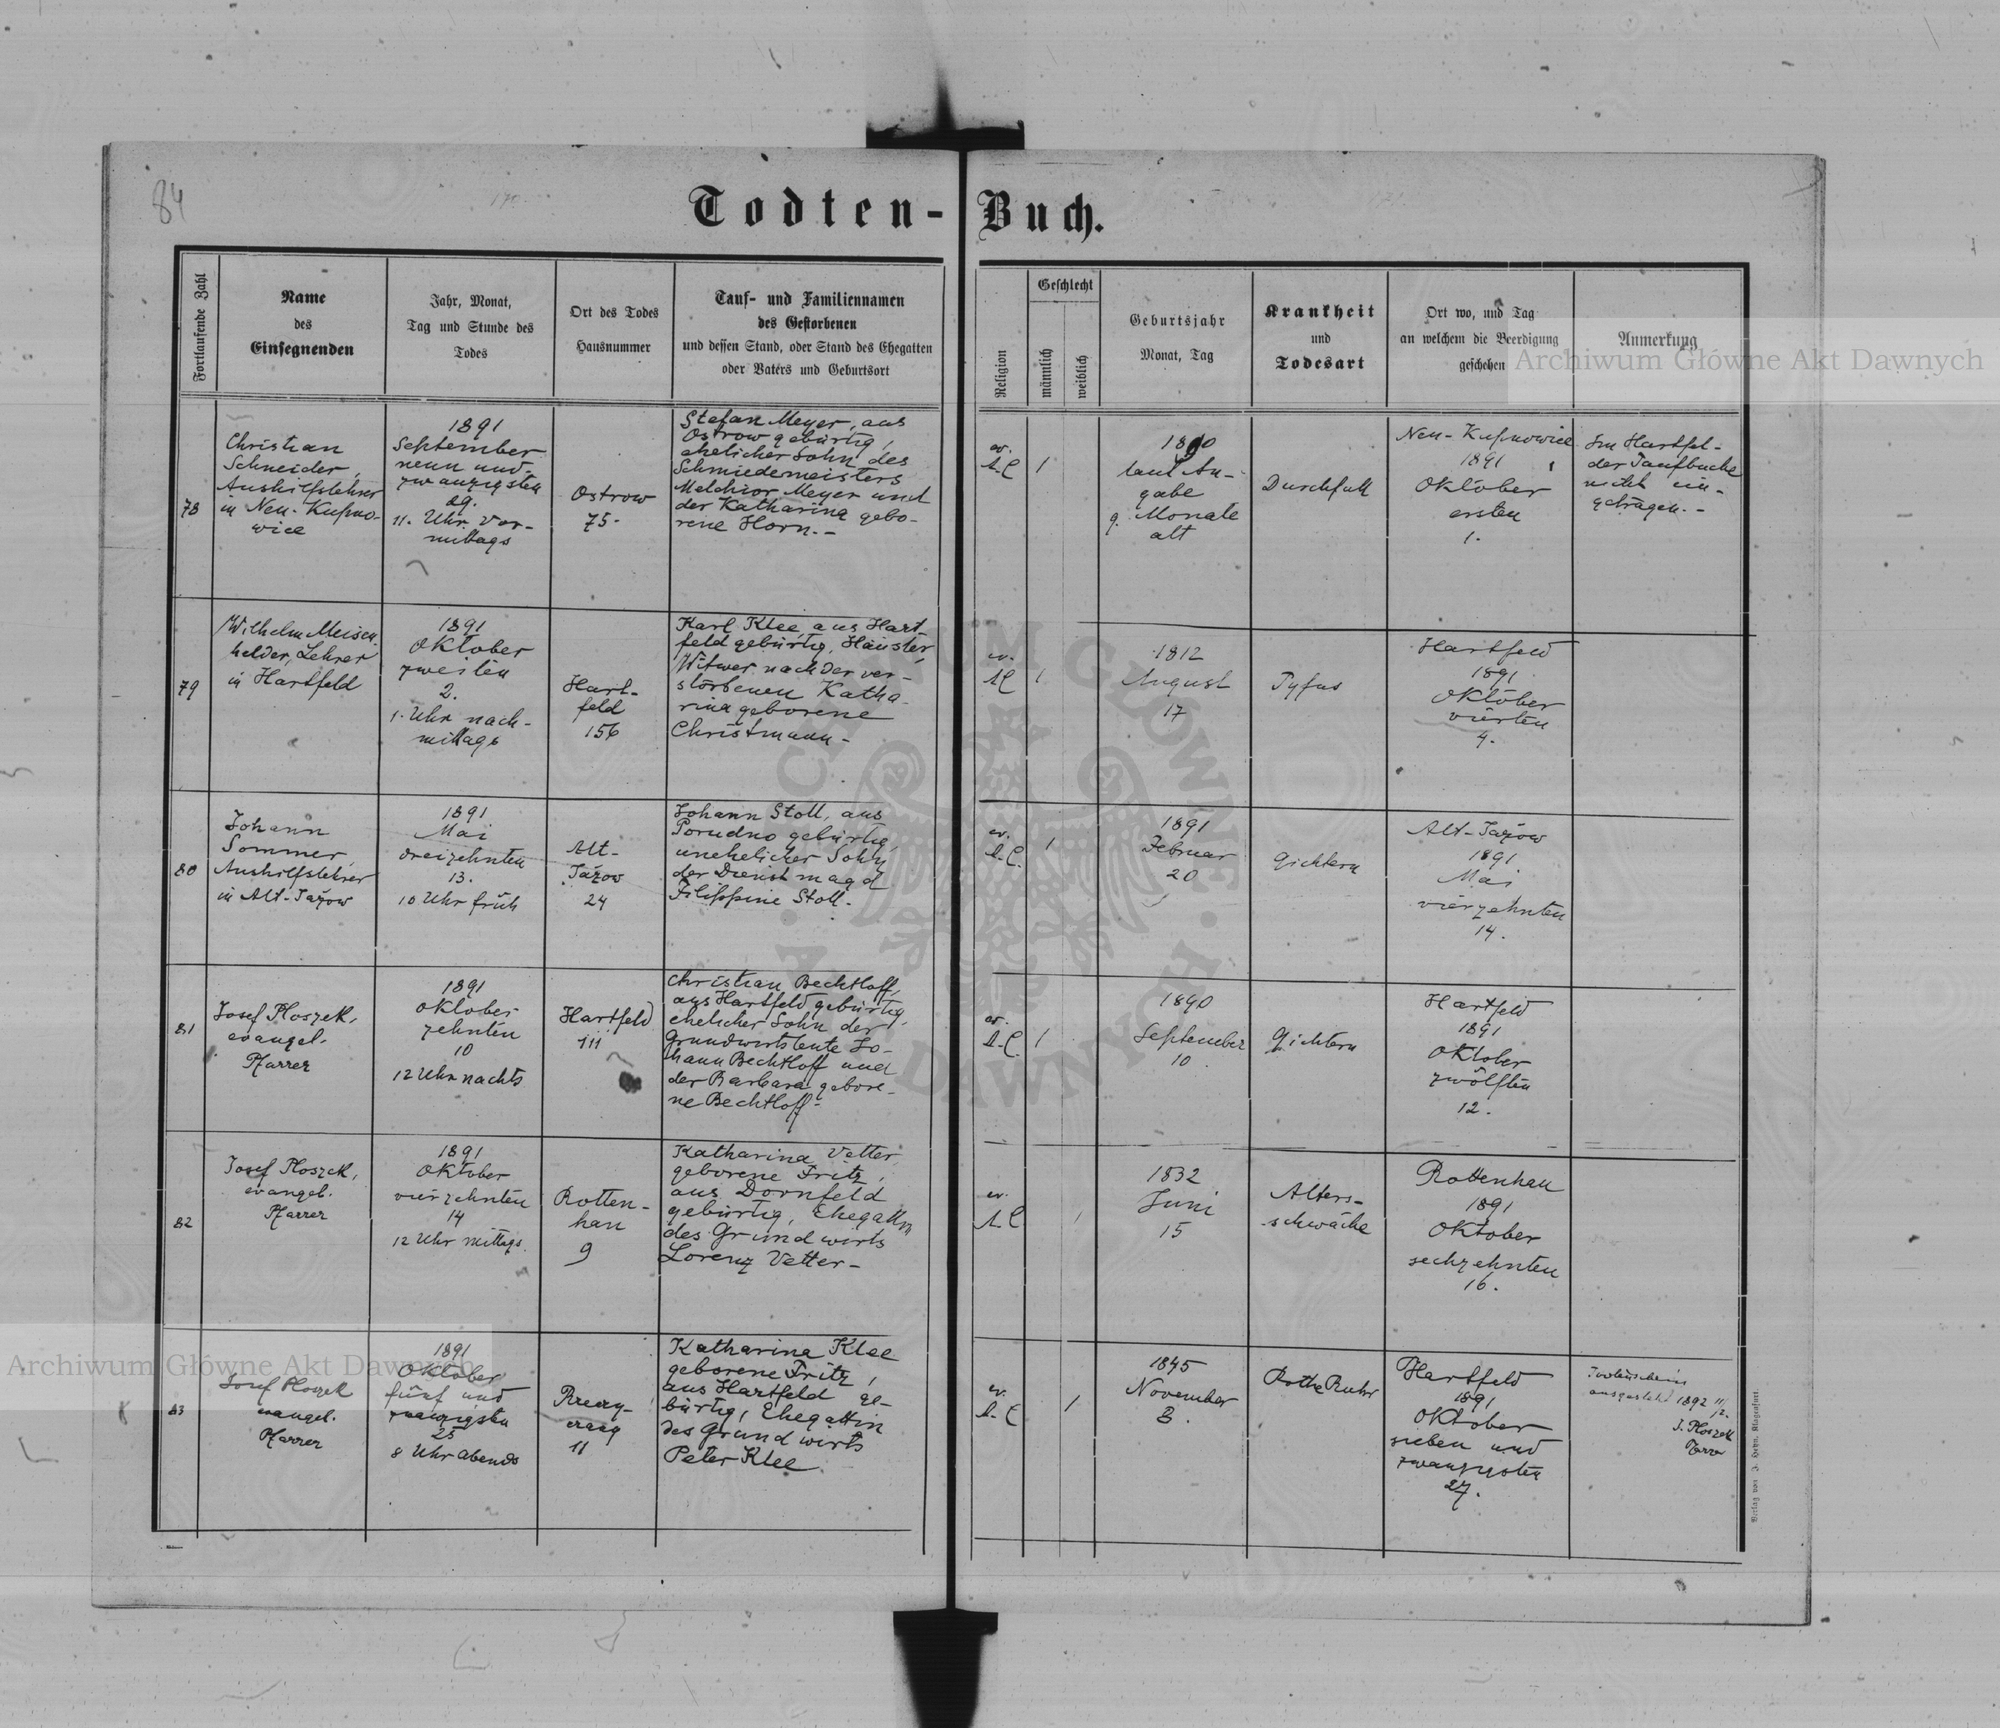 84
Todten-Buch.
Fortlaufende Zahl
Name
des
Einsegnenden
Jahr, Monat,
Tag und Stunde des
Todes
Ort des Todes
Hausnummer
Tauf- und Familiennamen
des Gestorbenen
und dessen Stand, oder Stand des Ehegatten
oder Vaters und Geburtsort
Religion
Geschlecht
männlich
weiblich
Geburtsjahr
Monat, Tag
Krankheit
und
Todesart
Ort wo, und Tag
an welchem die Beerdigung
geschehen
Anmerkung
Archiwum Główne Akt Dawnych
78
Christian
Schneider,
Aushilfslehrer
in Neu-Kupno-
wice
1891
September
neun und
zwanzigsten
29.
11. Uhr Vor-
mittags
Ostrow
75.
Stefan Meyer, aus
Ostrow gebürtig,
ehelicher Sohn des
Schmiedemeisters
Melchior Meyer und
der Katharina gebo-
rene Horn.-
ev.
A.C.
1
1890
laut An-
gabe
9. Monate
alt
Durchfall
Neu-Kupnowice
1891
Oktober
ersten
1.
Im Hartfel-
der Taufbuche
nicht ein-
getragen.-
79
Wilhelm Meisen
helder, Lehrer
in Hartfeld
1891
Oktober
zweiten
2.
1. Uhr nach-
mittags
Hart-
feld
156
Karl Klee aus Hart
feld gebürtig, Häusler,
Witwer nach der ver-
storbenen Katha-
rina geborene
Christmann-
ev.
AC
1
1812
August
17
Tyfus
Hartfeld
1891
Oktober
vierten
4.
80
Johann
Sommer,
Aushilfslehrer
in Alt-Jażow
1891
Mai
dreizehnten
13.
10 Uhr früh
Alt-
Jażow
24
Johann Stoll, aus
Porudno gebürtig,
unehelicher Sohn
der Dienstmagd
Filippine Stoll.
ev.
A.C.
1
1891
Februar
20
Gichtern
Alt-Jażow
1891
Mai
vierzehnten
14.
81
Josef Ploszek,
evangel.
Pfarrer
1891
Oktober
zehnten
10
12 Uhr nachts
Hartfeld
111
Christian Bechtloff,
aus Hartfeld gebürtig,
ehelicher Sohn der
Grundwirtsleute Jo-
hann Bechtloff und
der Barbara gebore-
ne Bechtloff-
ev.
A.C.
1
1890
September
10
Gichtern
Hartfeld
1891
Oktober
zwölften
12.
82
Josef Ploszek,
evangel.
Pfarrer
1891
Oktober
vierzehnten
14
12 Uhr mittags.
Rotten-
han
9
Katharina Vetter
geborene Fritz,
aus Dornfeld
gebürtig, Ehegattin
des Grundwirts
Lorenz Vetter-
ev.
A.C.
1
1832
Juni
15
Alters-
schwäche
Rottenhan
1891
Oktober
sechzehnten
16.
83
Josef Ploszek
evangel.
Pfarrer
1891
Oktober
fünf und
zwanzigsten
25
8 Uhr abends
11
Katharina Klee
geborene Fritz,
aus Hartfeld ge-
bürtig, Ehegattin
des Grundwirts
Peter Klee
ev.
A.C.
1
1845
November
3.
Rothe Ruhr
Hartfeld
1891
Oktober
sieben und
zwanzigsten
27.
ausgestellt 1892
J. Ploszek
Pfarrer
Verlag von J. Heyn, Klagenfurt.
Archiwum Główne Akt Dawnych
ARCHIWUM GŁÓWNE AKT DAWNYCH